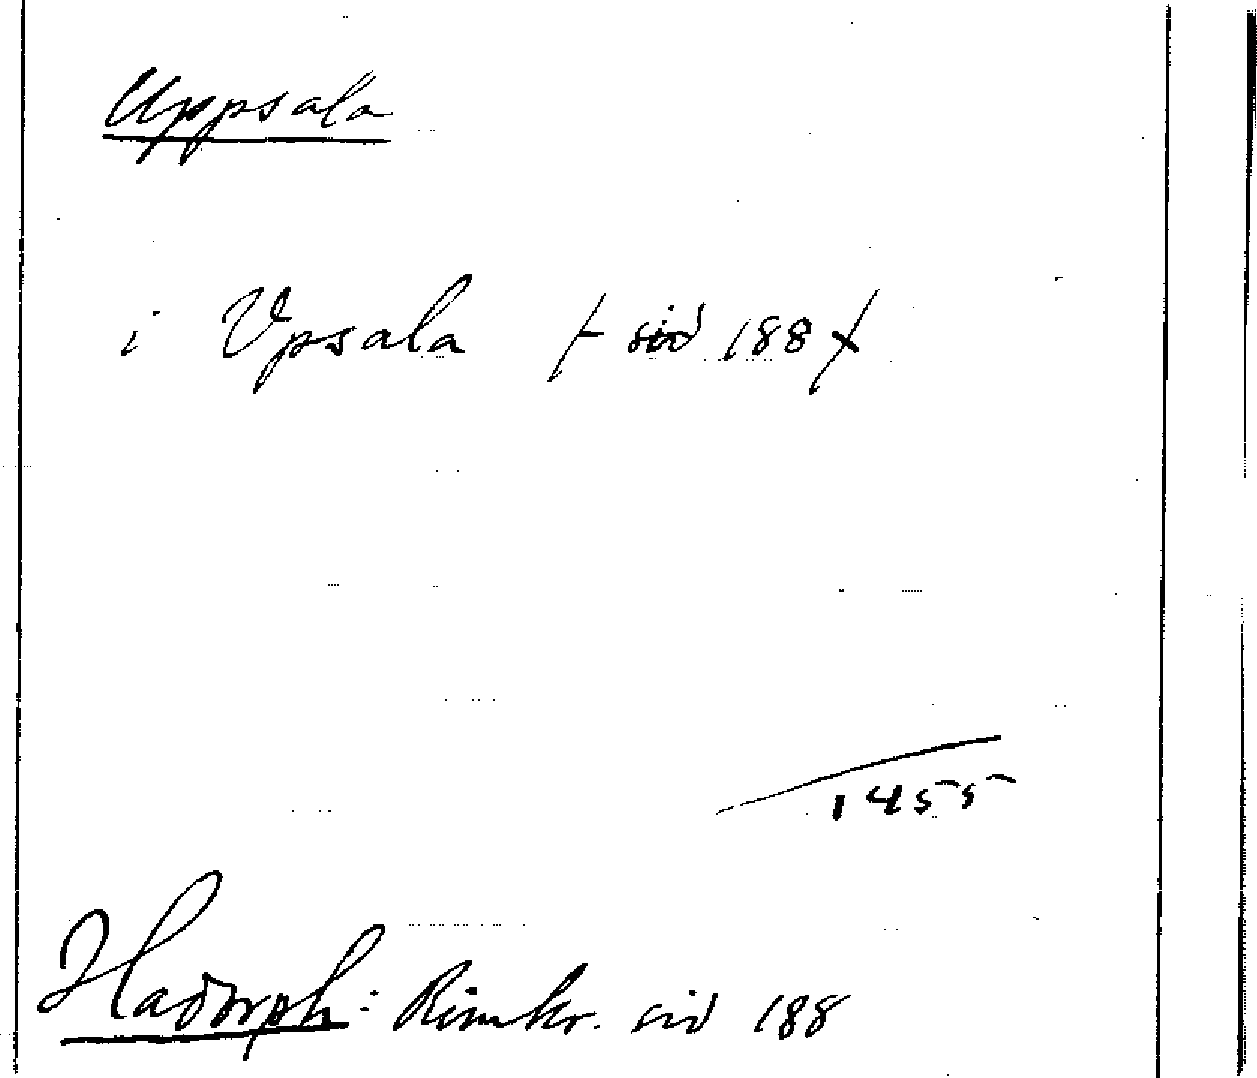 Uppsala
i Vpsala /- sid 188 /
1455
Hadorph: Rimkr. sid 188